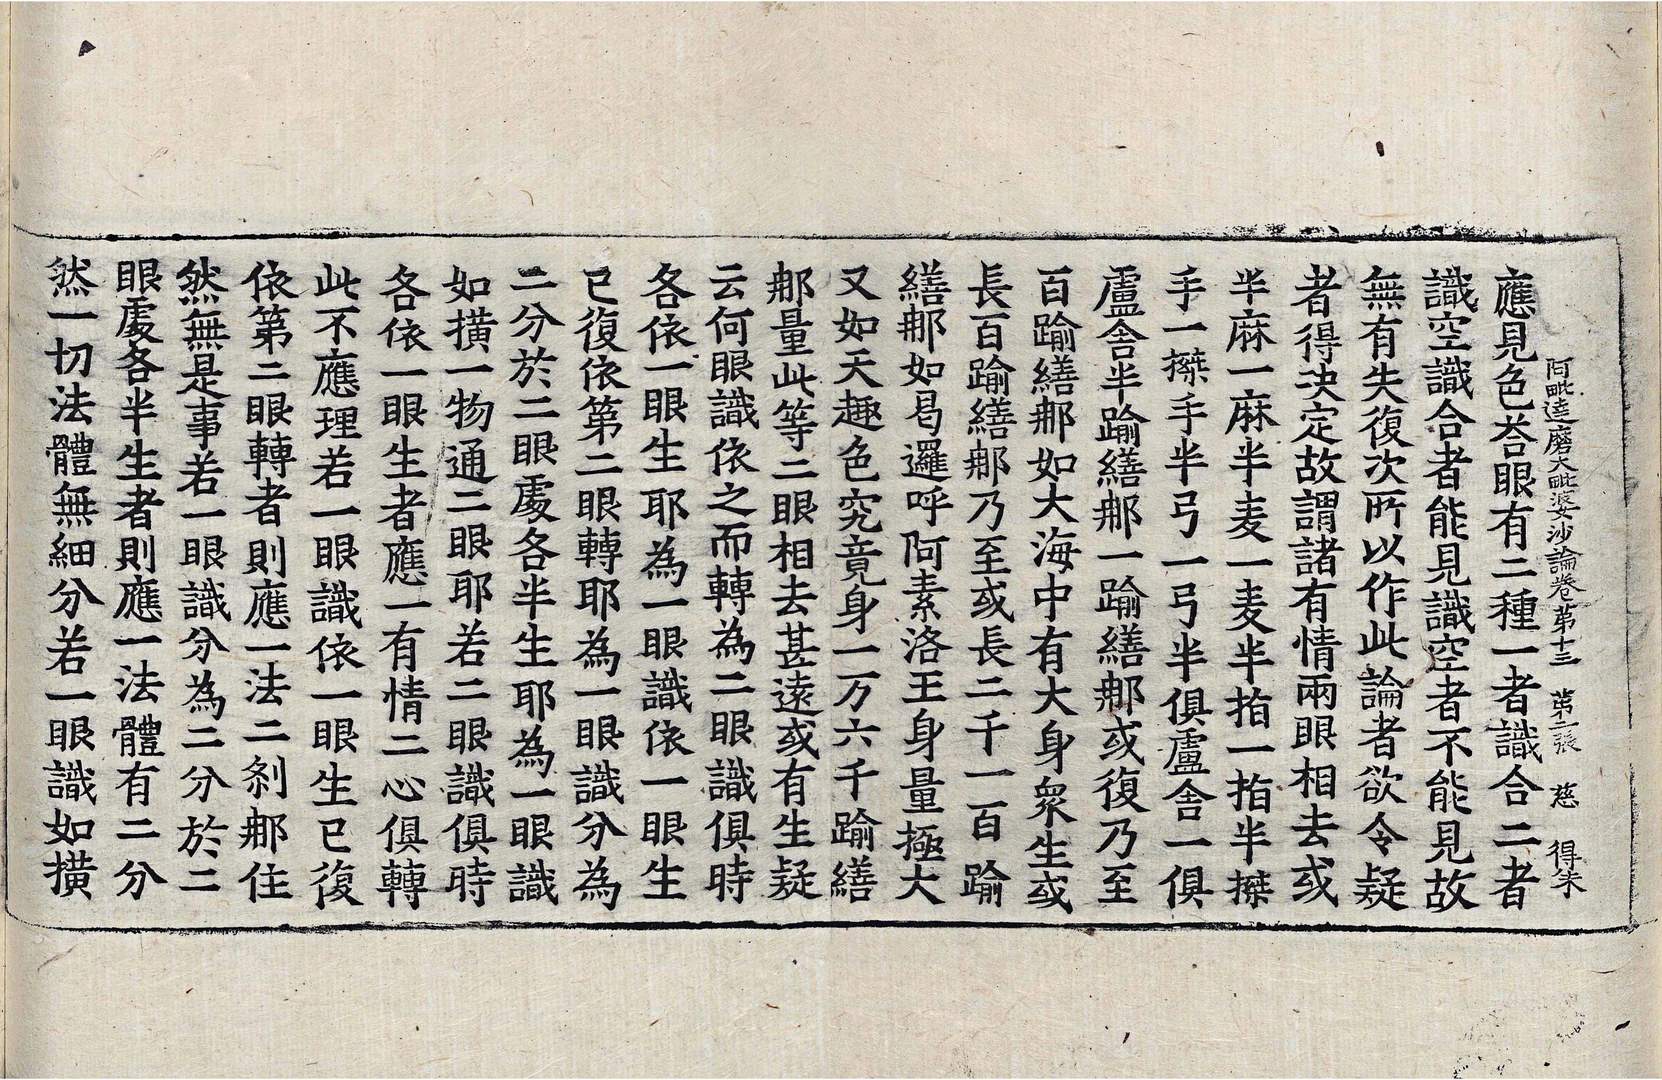 阿毗達磨大毗婆沙論卷苐十三 苐二張 慈 得朱
應見色荅眼有二種一者識合二者
識空識合者能見識空者不能見故
無有失復次所以作此論者欲令疑
者得決定故謂諸有情兩眼相去或
半麻一麻半麦一麦半指一指半搩
手一搩手半弓一弓半俱盧舍一俱
盧舍半踰繕那一踰繕那或復乃至
百踰繕那如大海中有大身衆生或
長百踰繕那乃至或長二千一百踰
繕那如曷邏呼阿素洛王身量極大
又如天趣色究竟身一万六千踰繕
那量此等二眼相去甚遠或有生疑
云何眼識依之而轉為二眼識俱時
各依一眼生耶為一眼識依一眼生
已復依第二眼轉耶為一眼識分為
二分於二眼處各半生耶為一眼識
如撗一物通二眼耶若二眼識俱時
各依一眼生者應一有情二心俱轉
此不應理若一眼識依一眼生已復
依第二眼轉者則應一法二剎那住
然無是事若一眼識分為二分於二
眼處各半生者則應一法體有二分
然一切法體無細分若一眼識如撗